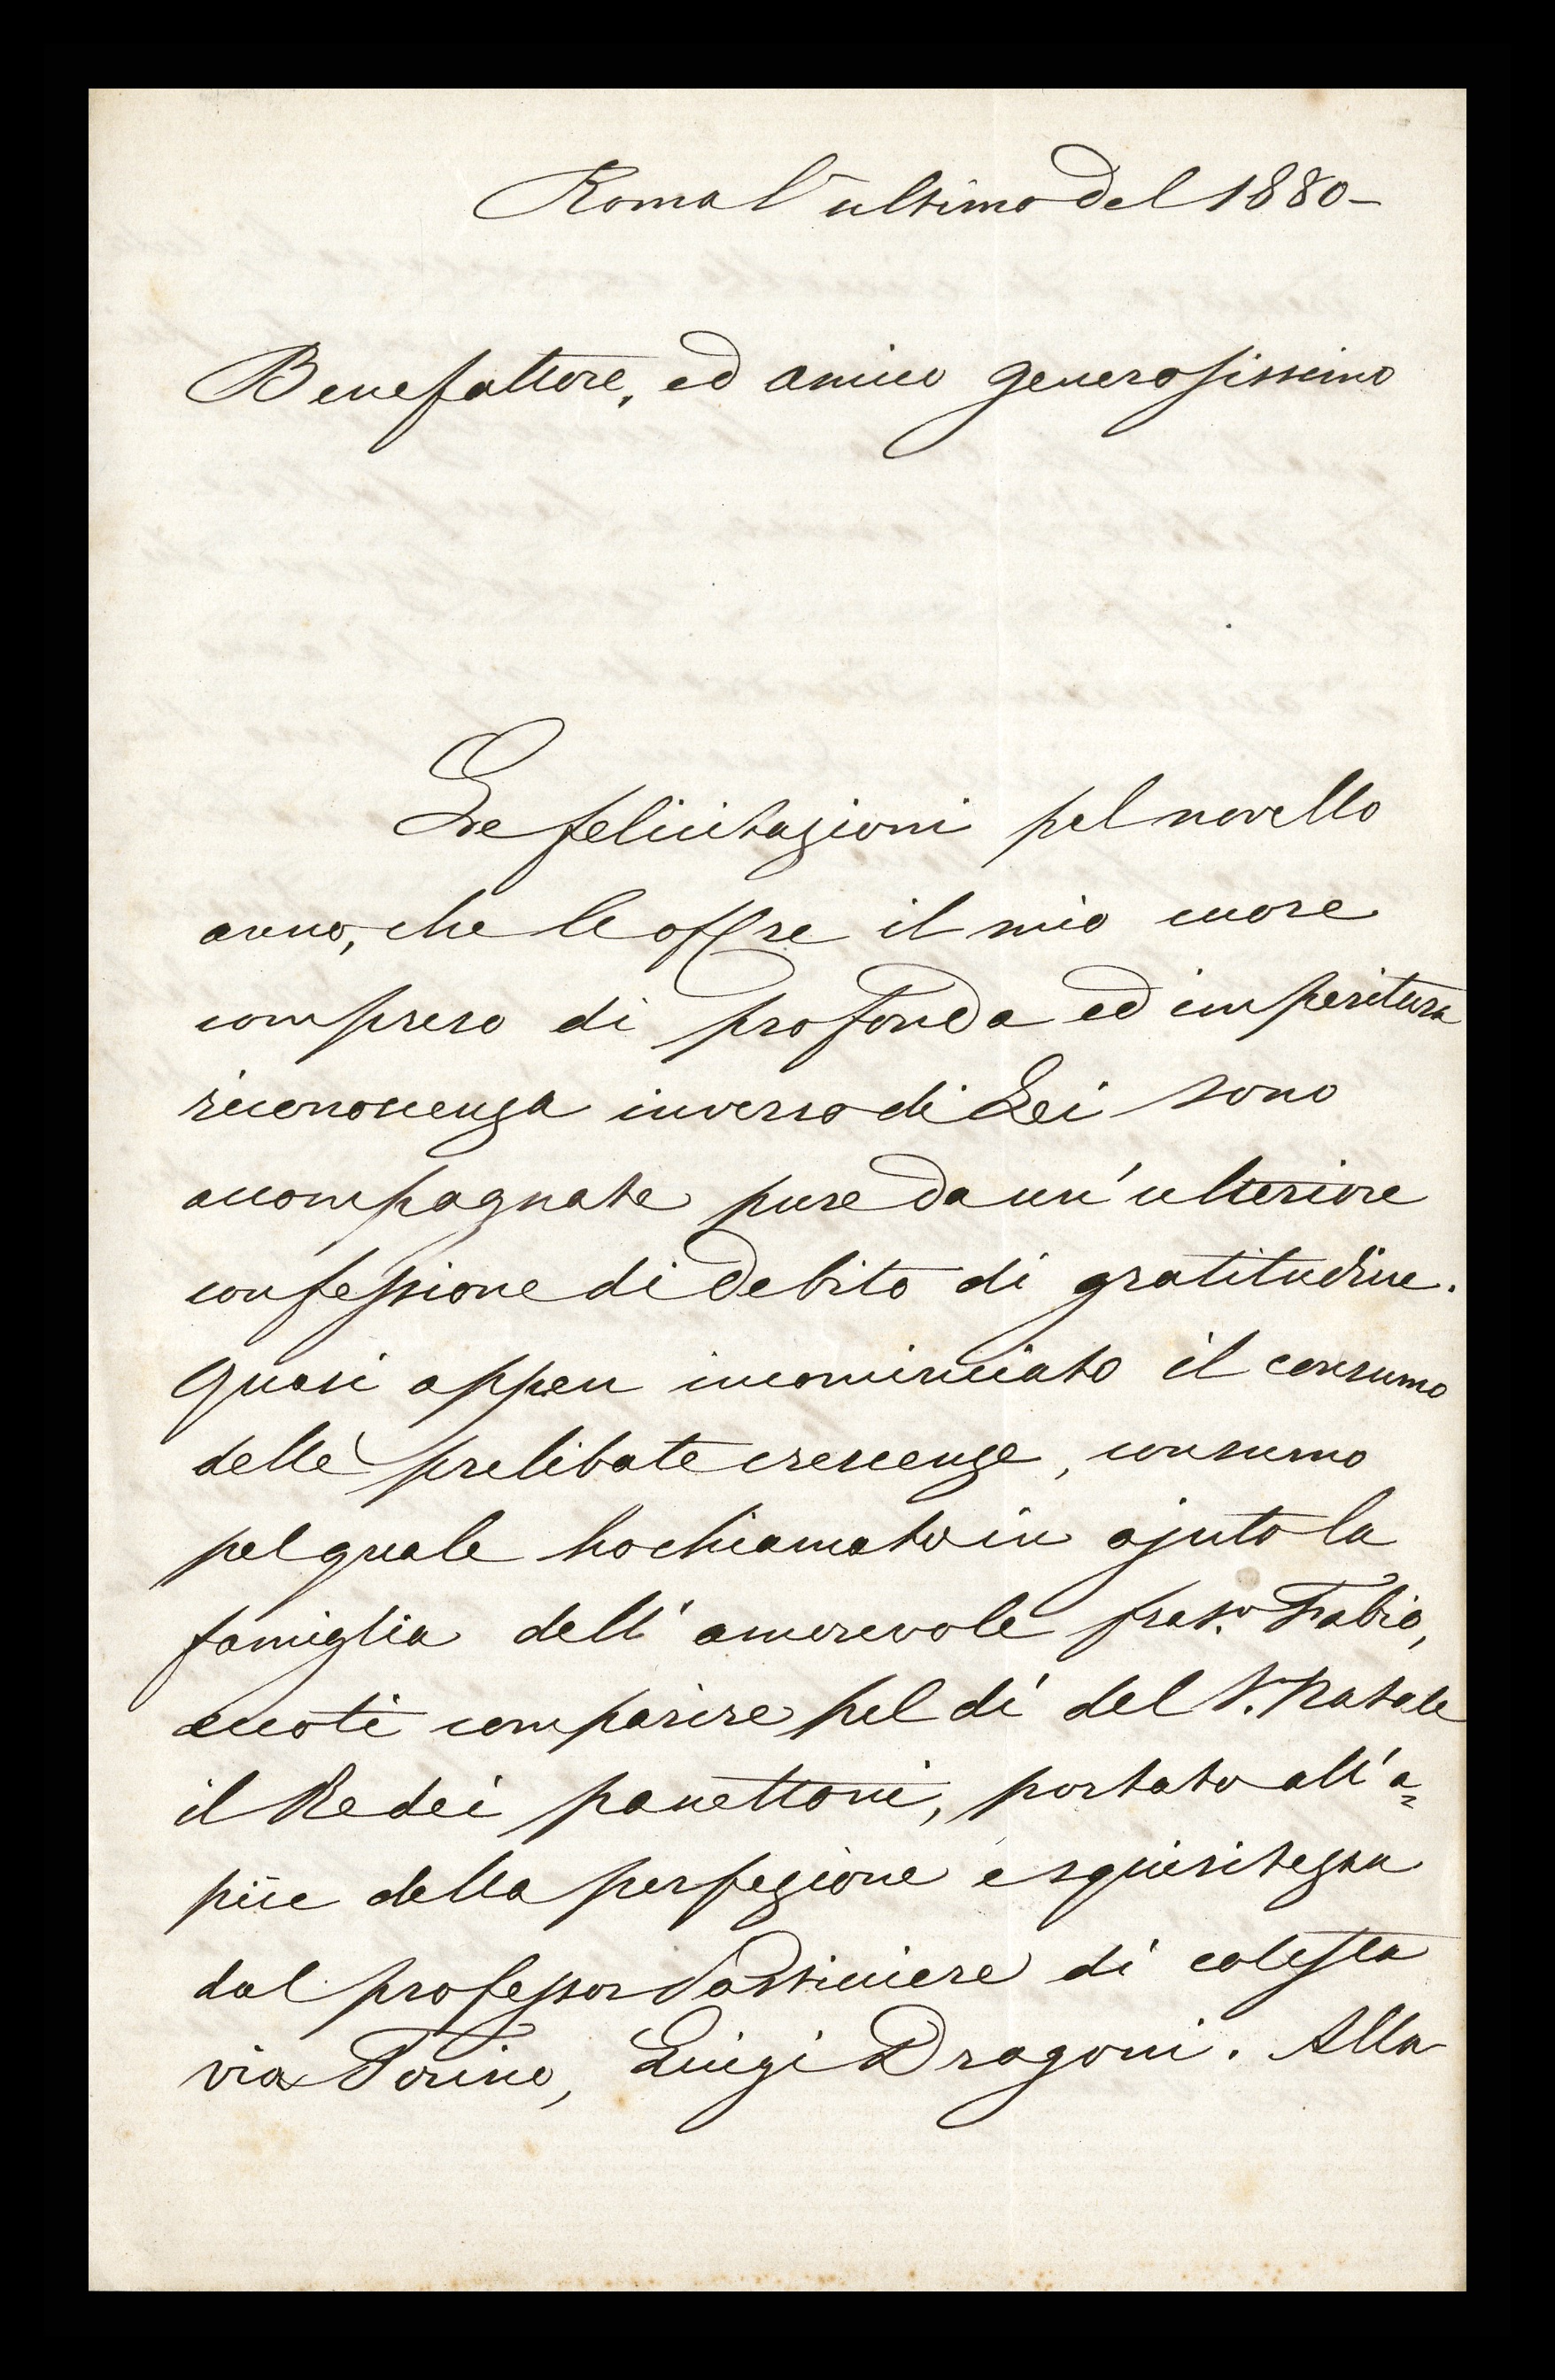 Roma l'ultimo del 1880-
Benefattore, ed amico generosissimo
Le felicitazioni pel novello
anno, che le offre il mio cuore
compreso di profonda ed imperitura
riconoscenza inverso di Lei sono
accompagnate pure da un' ulteriore
confessione di debito di gratitudine.
Quasi appen incominciato il consumo
delle prelibate crescenze, consumo
pel quale ho chiamato in ajuto la
famiglia dell' amorevole frat.o Fabio,
eccoti comparire pel dì del S. Natale
il Re dei panettoni, portato all' a=
pice della perfezione e squisitezza
dal professor Pasticciere di cotesta
via Torino, Luigi Dragoni. Alla